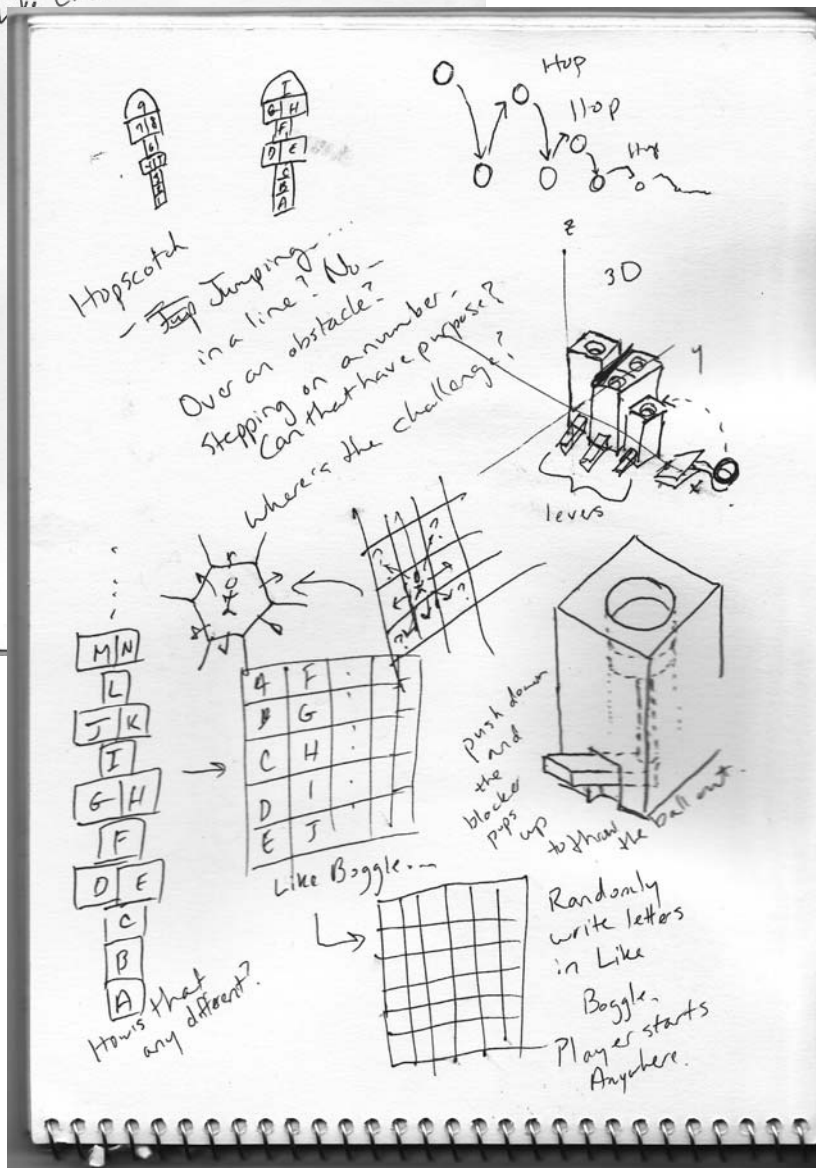 9
7 8
6
I
G H
F
D E
C
B
A
Hop
Hop
Hop
Hopscotch
- Jump Jumping....
in a line? No -
Over an obstacle?
Stepping on a number -
Can that have purpose?
Where's the challenge?
z
3D
y
x
levers
M N
L
J K
I
G H
F
D E
C
B
A
How is that
any different?
A F
B G
C H
D I
E J
Like Boggle...
push down
and
the
blocker
pops
up
to throw the ball out.
Randomly
write letters
in Like
Boggle.
Player starts
Anywhere.